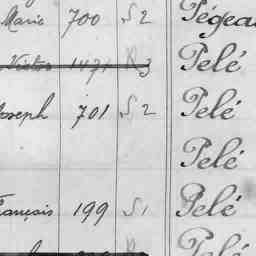 Marie 700 S 2 Pégea
Victor 1171 R 3 Pelé
Joseph 701 S 2 Pelé
Pelé
rançois 199 S 1 Pelé
Pelé